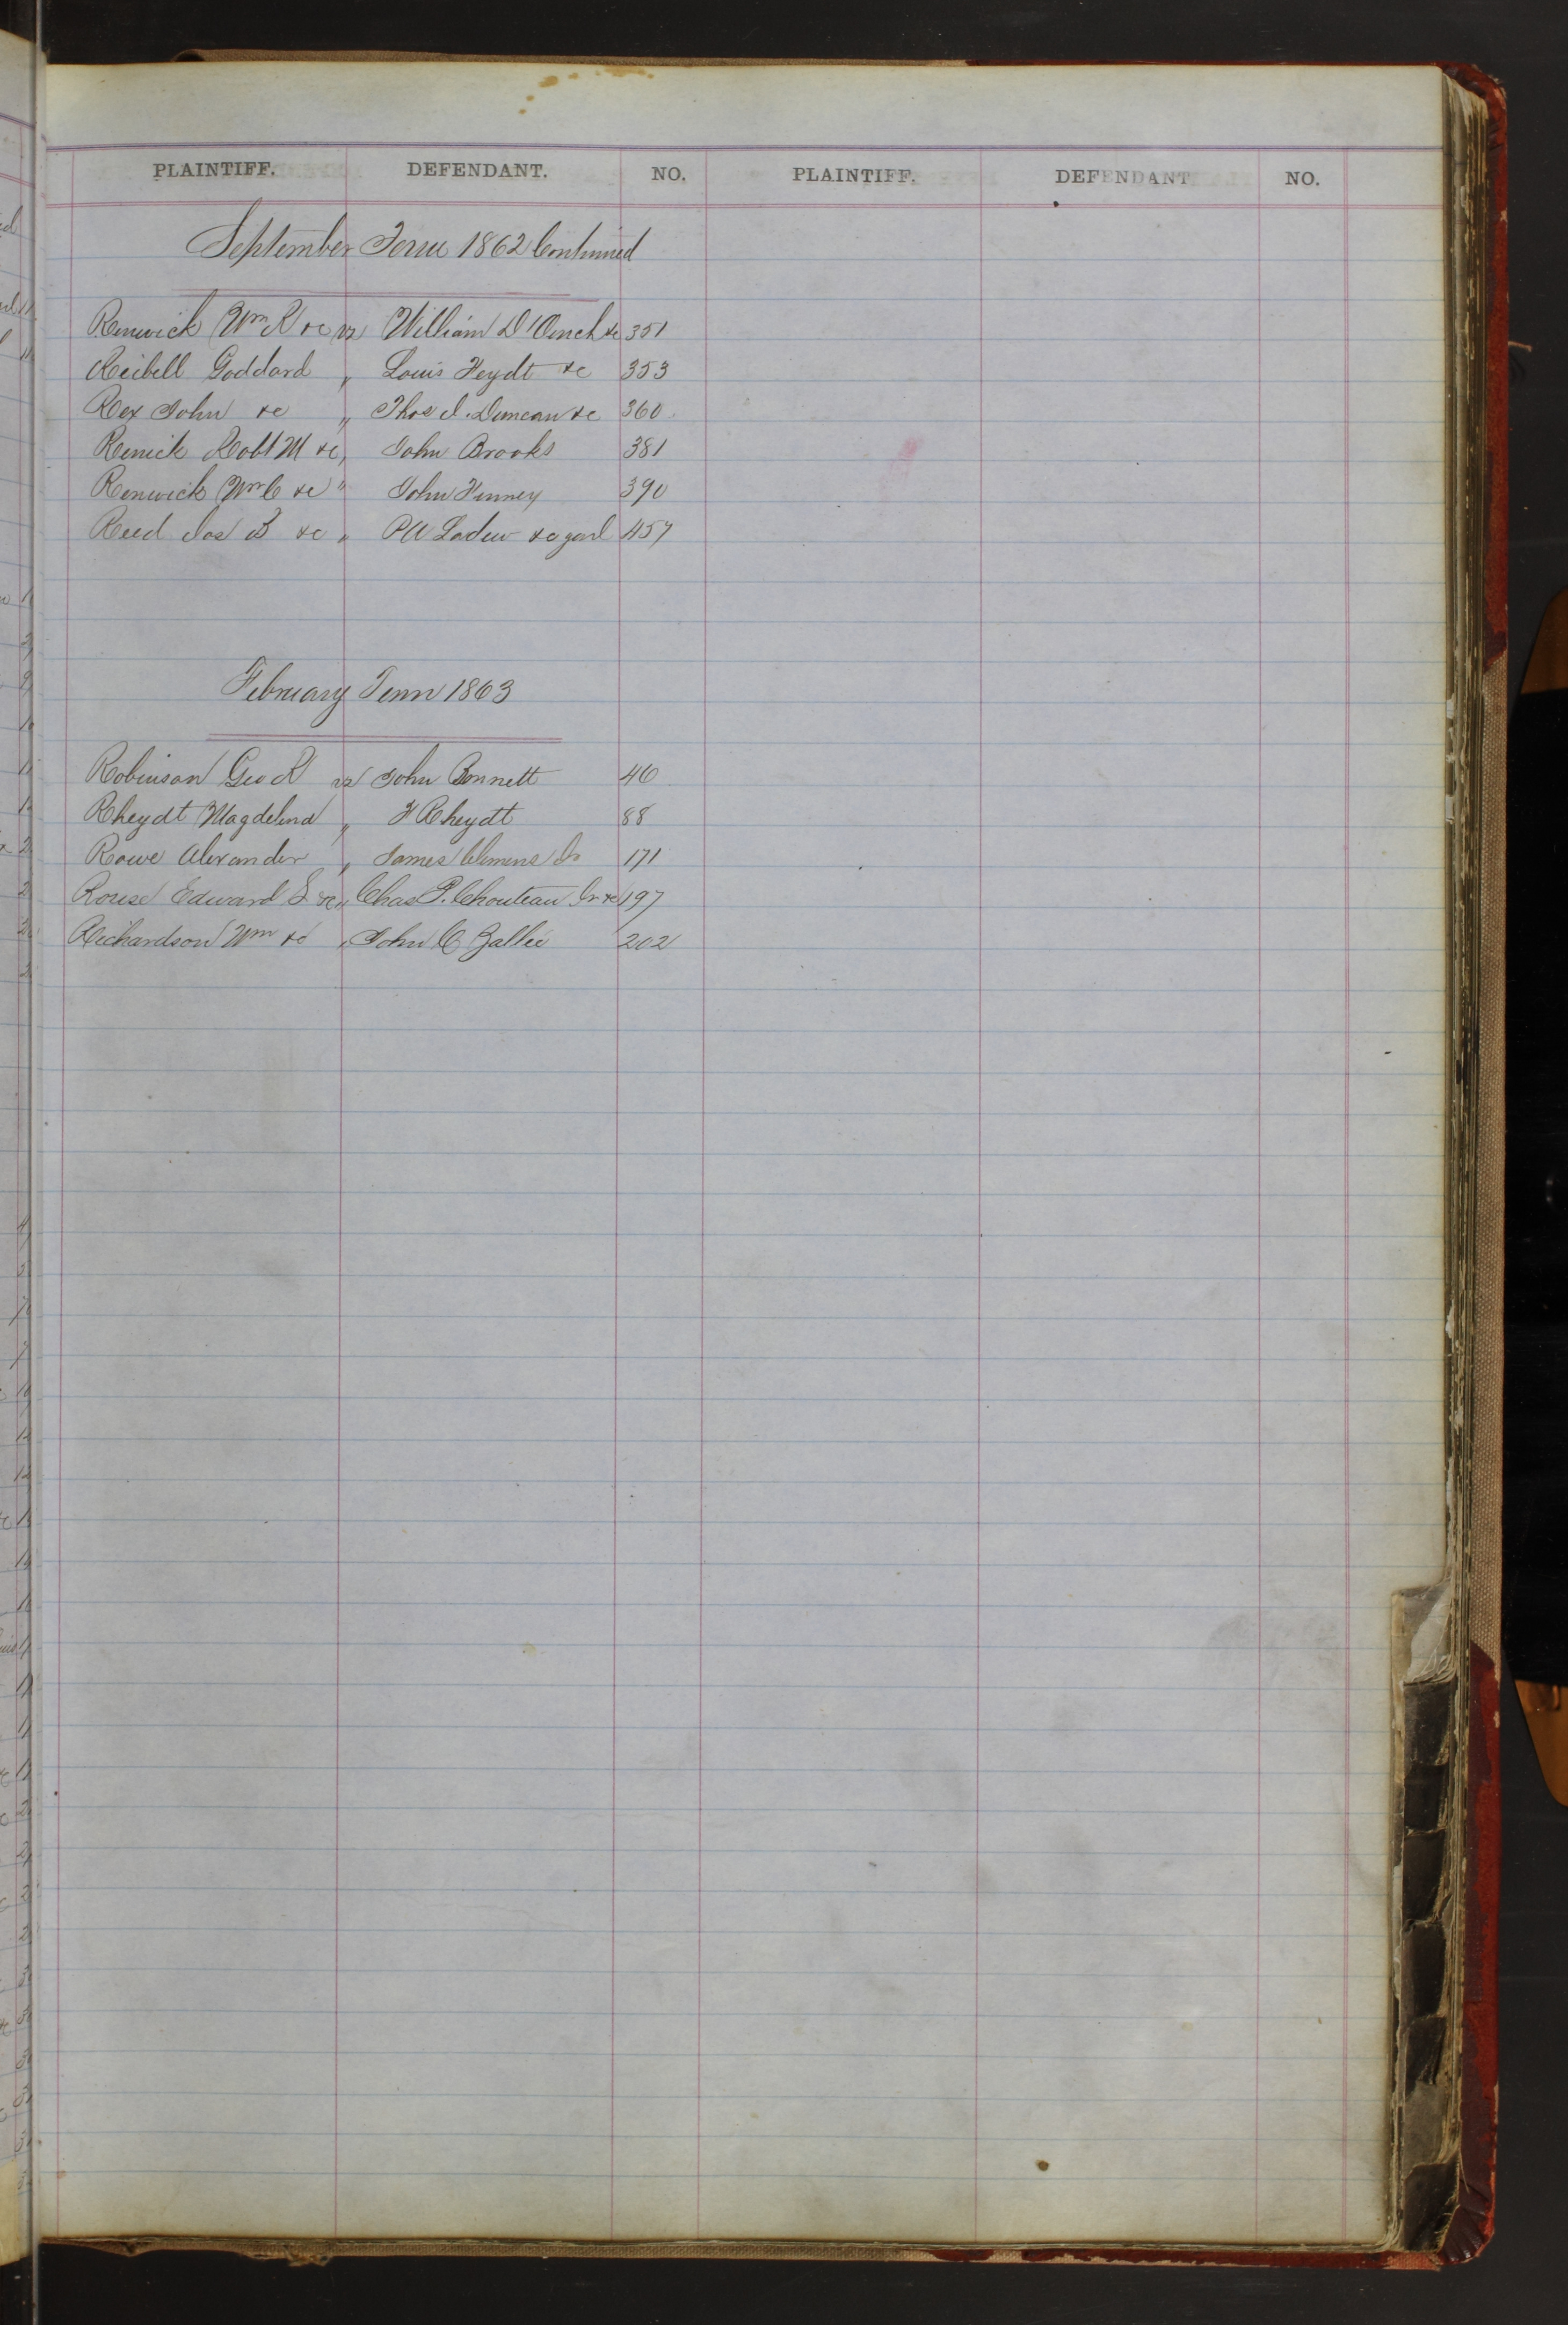 PLAINTIFF. DEFENDANT. NO. PLAINTIFF. DEFENDANT NO.
September Term 1862 Continued
Renwick Wm R &c vs William D'Oench &c 351
Reibell Goddard " Louis Heydt &c 353
Rex John &c " Thos J. Duncan &c 360
Renick Robt M &c " John Brooks 381
Renwick Wm C &c " John Finney 390
Reed Jos B &c " P A Ladew &c garl 457
February Term 1863
Robinson Geo R vs John Bonnett 46
Rheydt Magdelena " H Rheydt 88
Rowe Alexander " James Clemens Jr 171
Rouse Edward S &c " Chas P. Chouteau Jr &c 197
Richardson Wm &c " John C Zallee 202